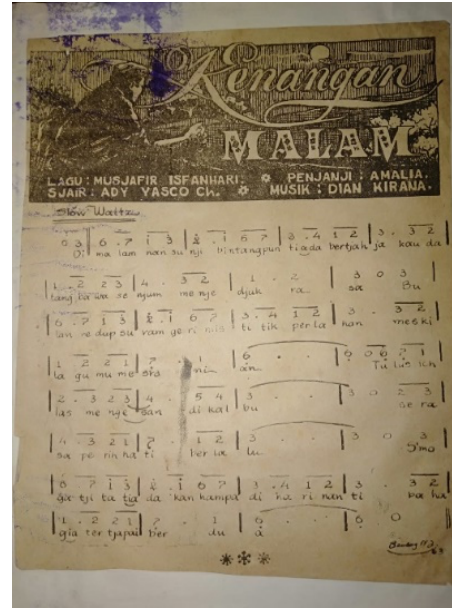 Kenangan
MALAM
LAGU : MUSJAFIR ISFANHARI. ✲ PENJANJI : AMALIA.
SJAIR : ADY YASCO CH. ✲ MUSIK : DIAN KIRANA.
Slow Waltz
0 3 | 6 . 7 1 3 | 2 . 1 6 7 | 3 . 4 1 2 | 3 . 3 2
Di ma lam nan su nji bintangpun tiada bertjah ja kau da
1 2 2 3 | 4 . 3 2 | 1 . 2 | 3 0 3
tang ba wa se njum me nje djuk ra sa Bu
6 . 7 1 3 | 2 . 1 6 7 | 3 . 4 1 2 | 3 . 3 2
lan redup su ram ge ri mis ti tik per la han mes ki
1 2 2 1 | 7 . 1 | 6 . . | 6 0 6 7 1
la gu mu me sra an Tu lus ich
2 . 3 2 3 | 4 . 5 4 | 3 . . | 3 0 2 3
las me nje san di kal bu se ra
4 . 3 2 1 | 7 . 1 2 | 3 . . | 3 0 3
sa pe rin ha ti ber la lu S'mo
6 . 7 1 3 | 2 . 1 6 7 | 3 . 4 1 2 | 3 . 3 2
ga tji ta tia da kan hampa di ha ri nan ti ba ha
1 . 2 2 1 | 7 . 1 | 6 . . | 6 0
gia ter tjapai ber du a